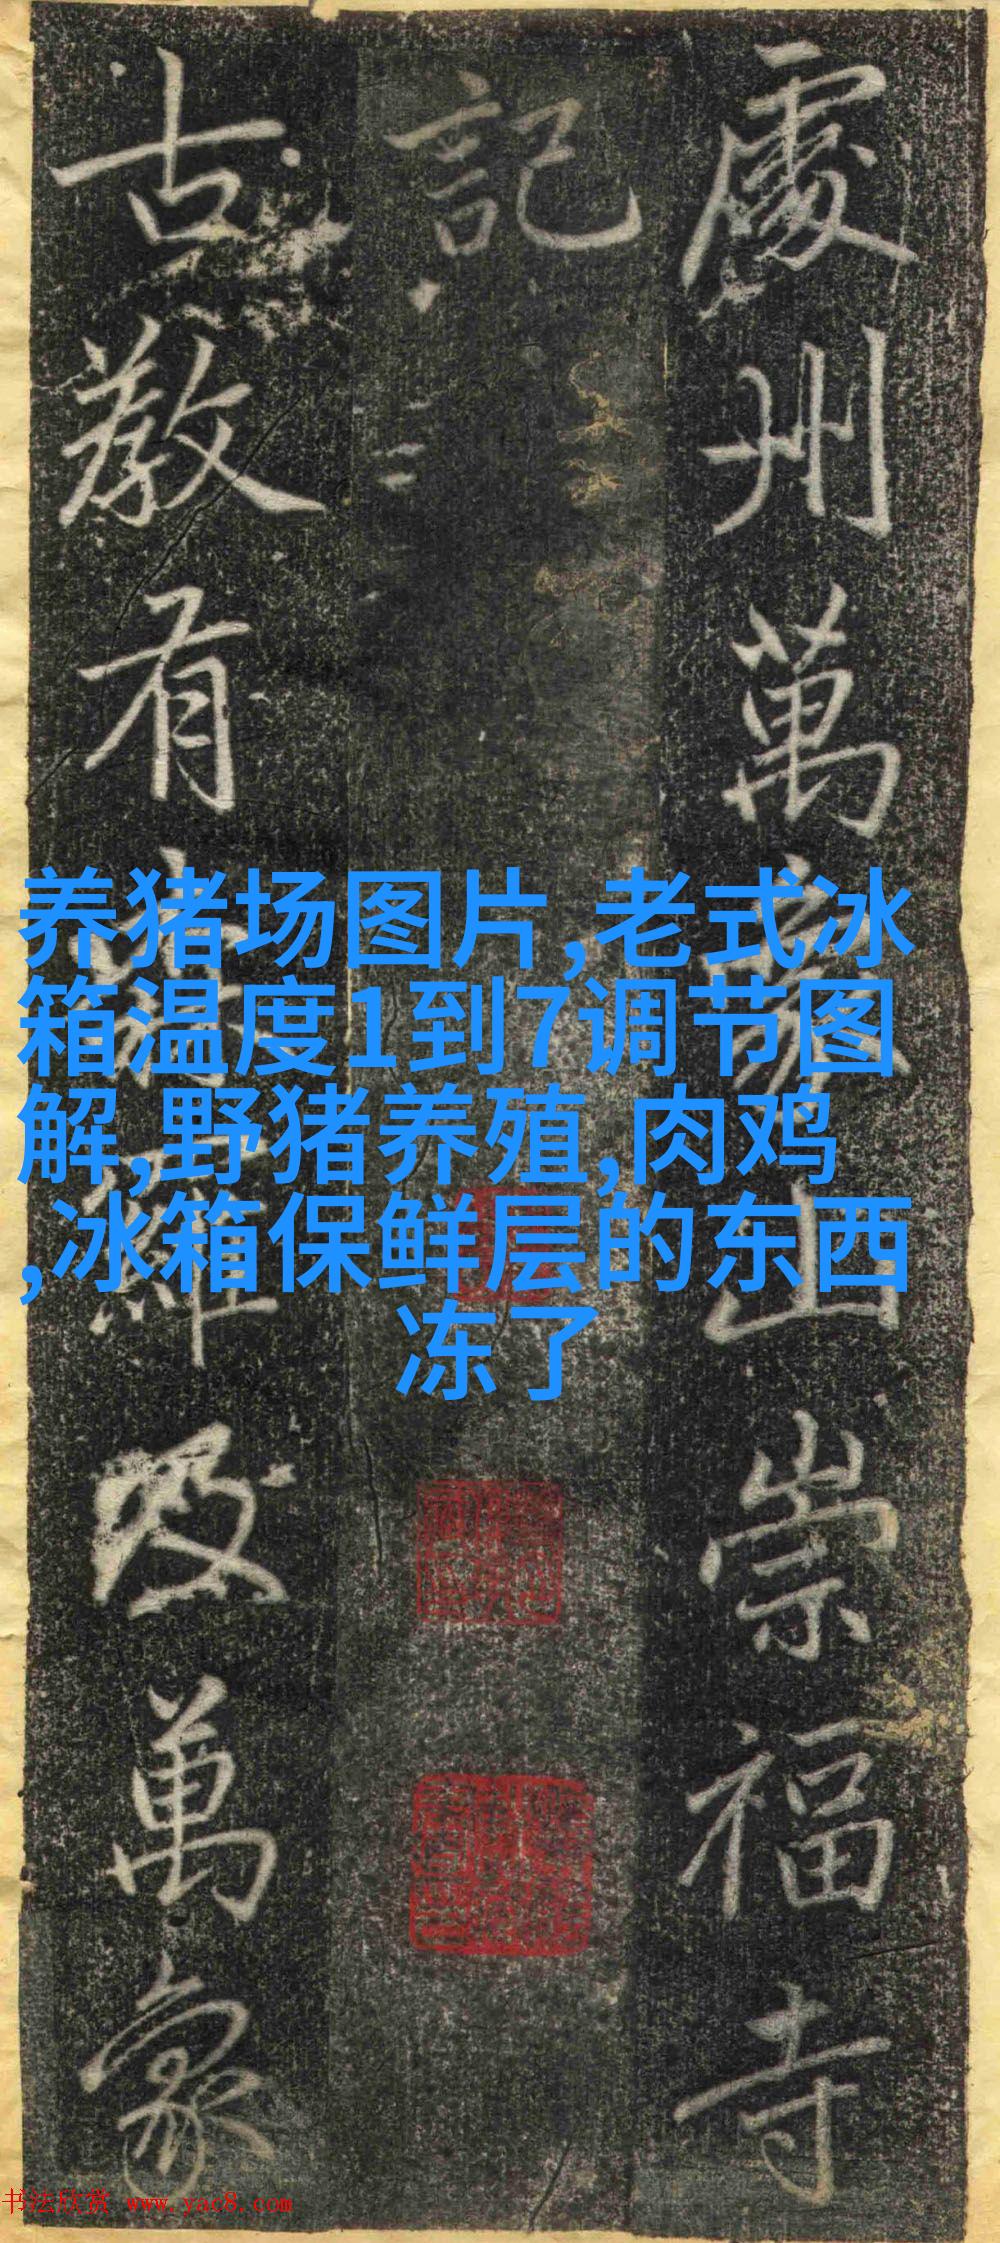 處州萬象山崇福寺
記
古教有
萬象
养猪场图片,老式冰
箱温度1到7调节图
解,野猪养殖,肉鸡
,冰箱保鲜层的东西
冻了
书法欣赏 www.yac8.com